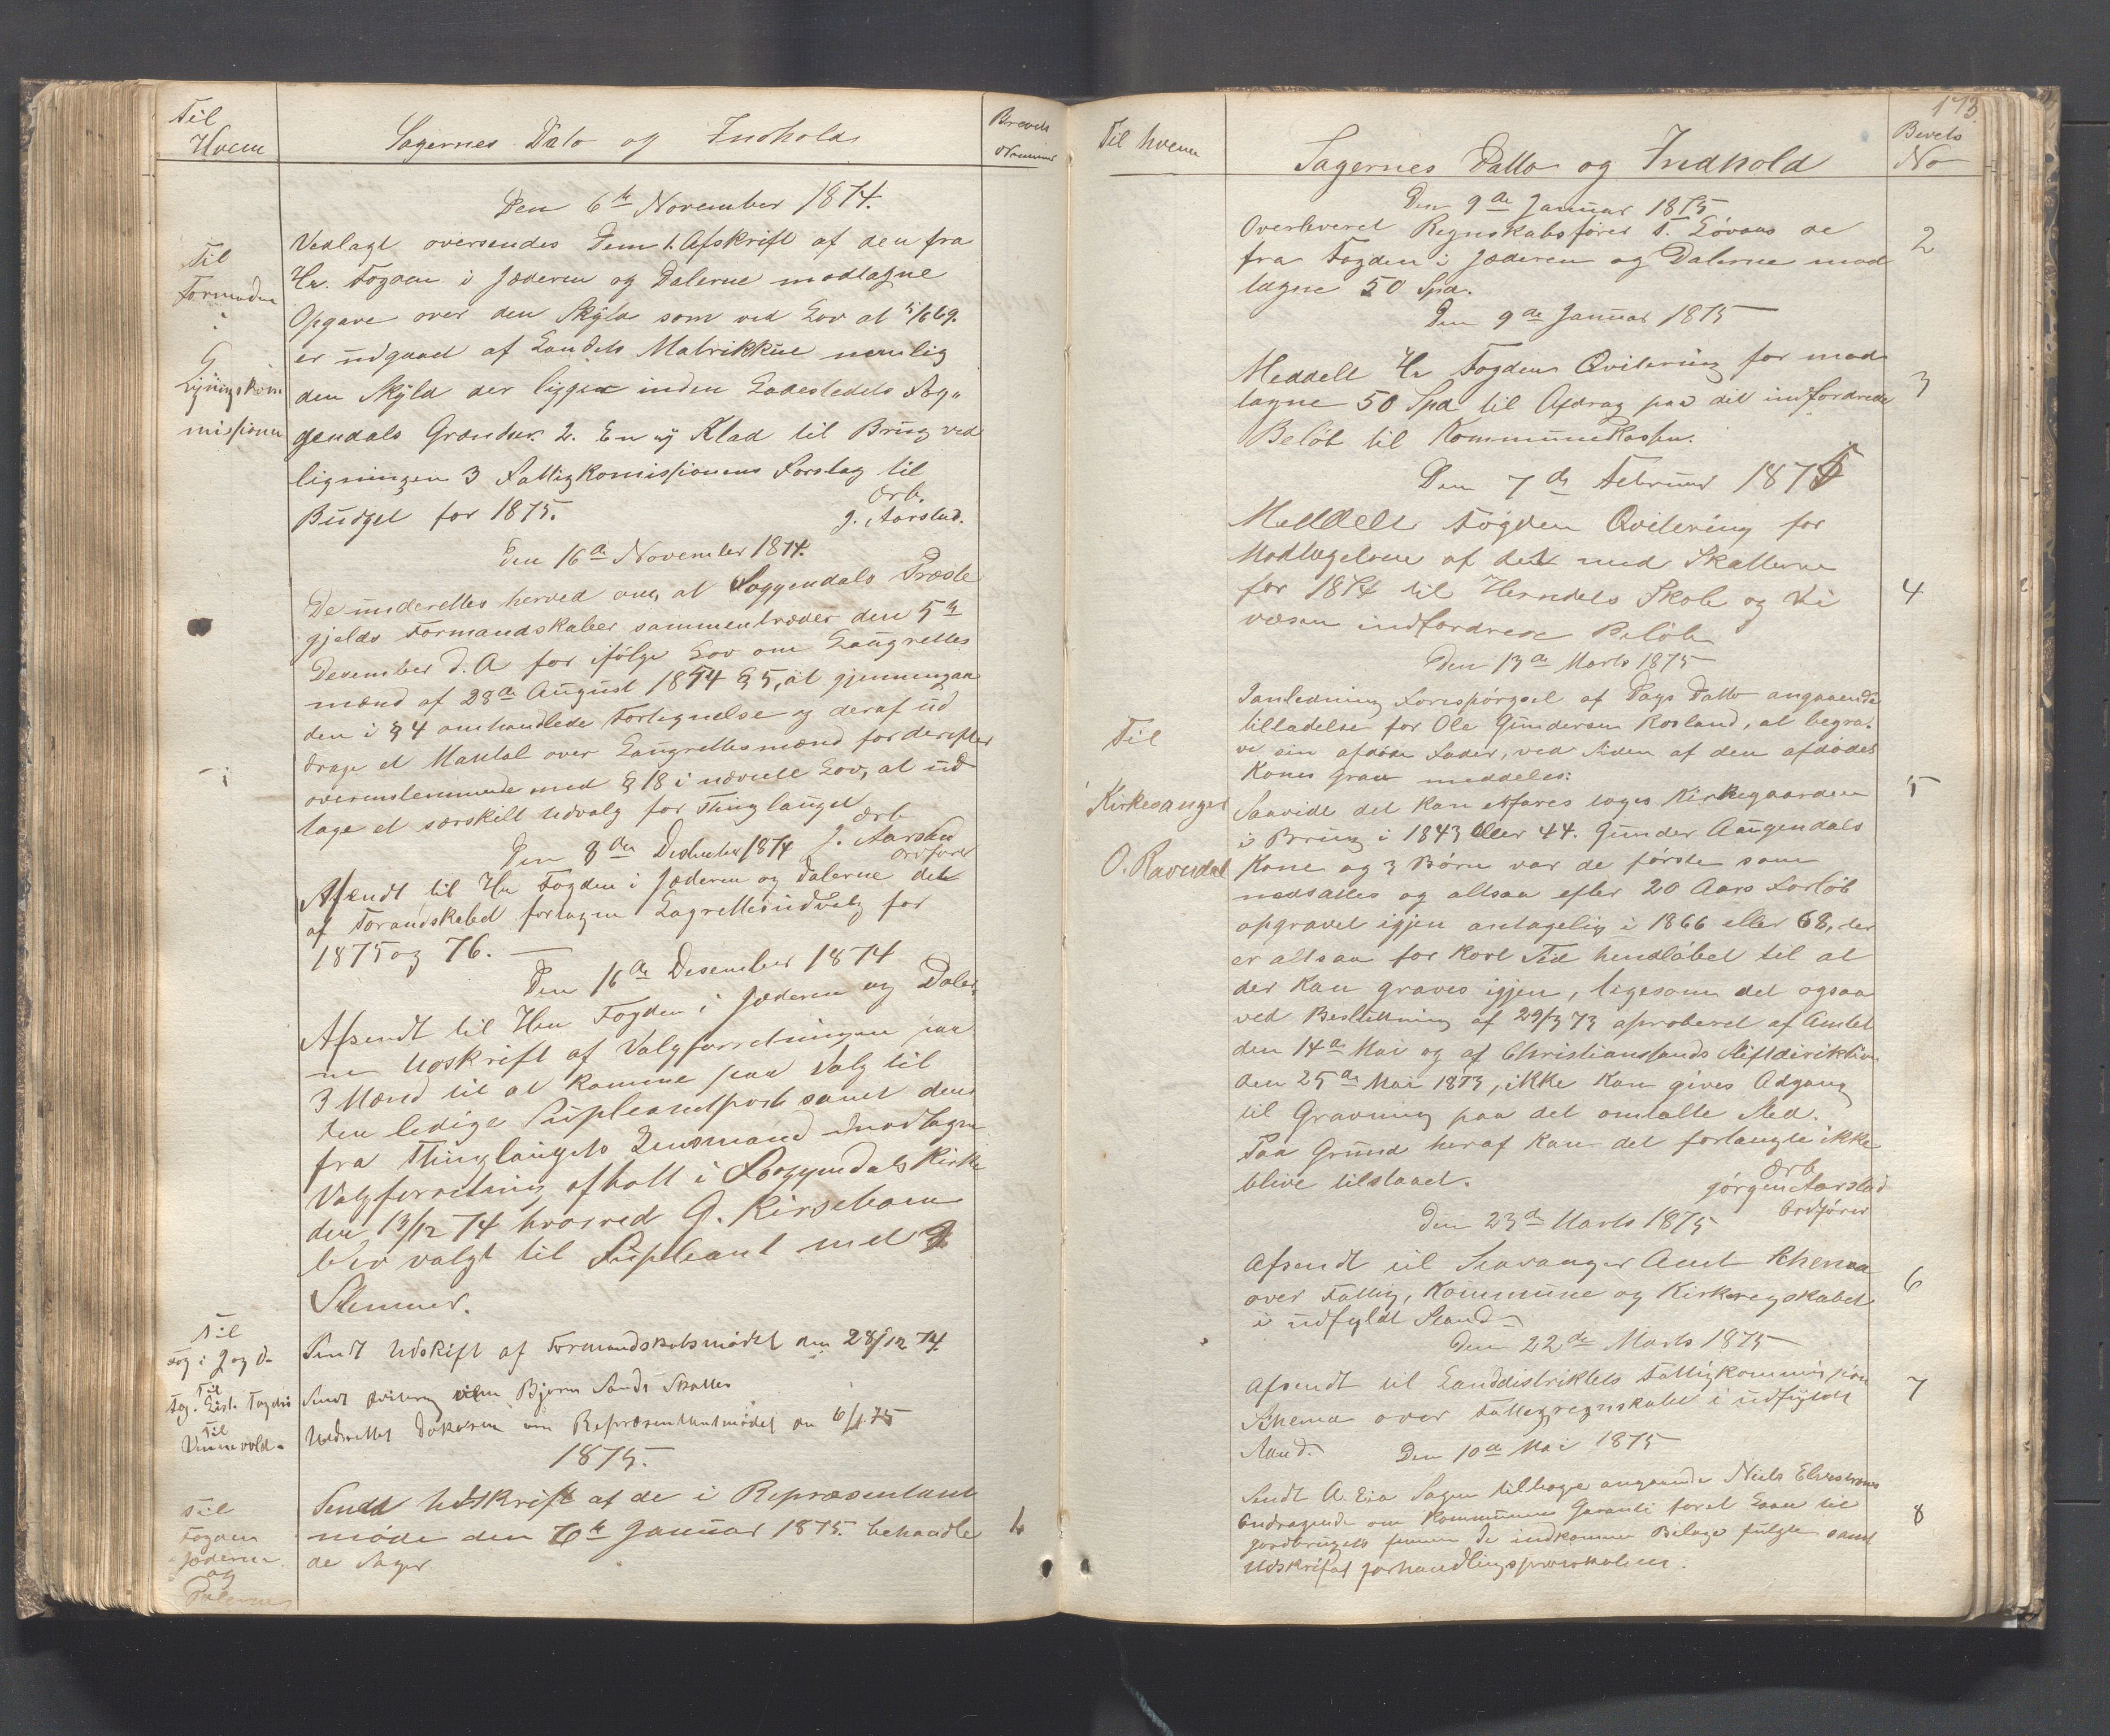 Til
Hvem
Sagernes Dato og Indhold
Brevets
Nummer
Den 6te November 1874.
Til
Formanden
i
Ligningskom
missionen
Vedlagt oversendes Dem 1. Afskrift af den fra
Hr. Fogden i Jæderen og Dalerne modtagne
Opgave over den Skyld som ved Lov at 5/6 69.
er udgaaet af Landets Matrikkul nemlig
den Skyld der ligger inden Ladestedets Sog„
gendals Grændser. 2. En ny Klad til Brug ved
ligningen 3 Fattigkomissionens Forslag til
Budget for 1875. Ærb.
J. Aarstad.
Den 16de November 1874.
De underettes herved om, at Soggendals Præste
gjelds Formandskaber sammentræder den 5te
Desember d. A for ifølge Lov om Laugrettes
mænd af 28de August 1854 § 5, at gjennemgaa
den i § 4 omhandlede Fortegnelse og deraf ud
drage et Mantal over Laugrettesmænd for derefter
overenstemmende med § 18 i nævnte Lov, at ud
tage et særskilt Udvalg for Thinglauget
Ærb
J. Aarstad
Ordfører
Den 8de Desember 1874
Afsendt til Hr Fogden i Jæderen og Dalerne det
af Forandskabet fortagne Lagrettesudvalg for
1875 og 76. —
Den 16de Desember 1874
Afsendt til Hrr Fogden i Jæderen og Daler,
ne Udskrift af Valgforretningen paa
3 Mænd til at komme paa Valg til
den ledige Supleantpost samt den
fra Thinglaugets Lensmand modtagne
Valgforretning afholt i Soggendals Kirke
den 13/12 74 hvorved G. Kirsebom
blev valgt til Supleant med 9
Stemmer.
Til
Fog i J og D.
Sendt Udskrift af Formandskabsmødet den 28/12 74.
Til
Sendt Bjørn Sands Skatter
Til
Vinnevold.
om Repræsentantmødet den 6/1 75
1875.
Til
Fogden
Jæderen
og
Dalerne
Sendt Udskrift af de i Repræsentant
møde den 6te Januar 1875. behandle
de Sager
1
173.
Til hvem
Sagernes Datto og Indhold
Brevets
No
Den 9de Januar 1875
Overleveret Regnskabsfører T. Løvaas de
fra Fogden i Jæderen og Dalerne mod
tagne 50 Spd.
2
Den 9de Januar 1875
Meddelt Hr Fogden Qvitering for mod
tagne 50 Spd til Afdrag paa det indfordrede
Beløb til Kommunekassen.
3
Den 7de Februar 1875
Meddelt Fogden Qvitering for
Modtagelsen af det med Skatterne
for 1874 til Herredets Skole og Vei
væsen indfordrede Beløb
4
Den 13de Marts 1875
Til
Kirkesanger
O. Ravndal
Ianledning Forespørgsel af Dags Datto angaaende
tilladelse for Ole Gundersen Rosland, at begra-
ve sin afdøde Fader, ved Siden af den afdødes
Kones grav meddeles:
Saavidt det kan erfares toges Kirkegaarden
i Brug i 1843 eller 44. Gunder Aaugendals
Kone og 3 Børn var de første som
nedsattes og altsaa efter 20 Aars Forløb
opgravet igjen antagelig i 1866 eller 68, der
er altsaa for kort Tid hendløbet til at
der kan graves igjen, ligesom det ogsaa
ved Beslutning af 29/3 73 aproberet af Amtet
den 14de Mai og af Christianssands Stiftdirektion
den 25de Mai 1873, ikke kan gives Adgang
til Gravning paa det omtalte Sted.
Paa Grund heraf kan det forlangte ikke
blive tilstaaet.
5
Ærb
Jørgen Aarstad
Ordfører
Den 23de Marts 1875
Afsendt til Stavanger Amt Schema
over Fattig, Kommune og Kirkeregskabet
i udfyldt Stand
6
Den 22de Marts 1875
Afsendt til Landdistriktets Fattigkommission
Schema over Fattigregnskabet i udfyldt
Stand.
7
Den 10de Mai 1875
Sendt A. Eia Sagen tilbage angaaende Niels Elvestrøms
Andragende om Kommunens Garanti for et Laan til
Jordbrugets fremme De indkomne Bilage fulgte samt
Udskrift af forhandlingsprotokolen.
8